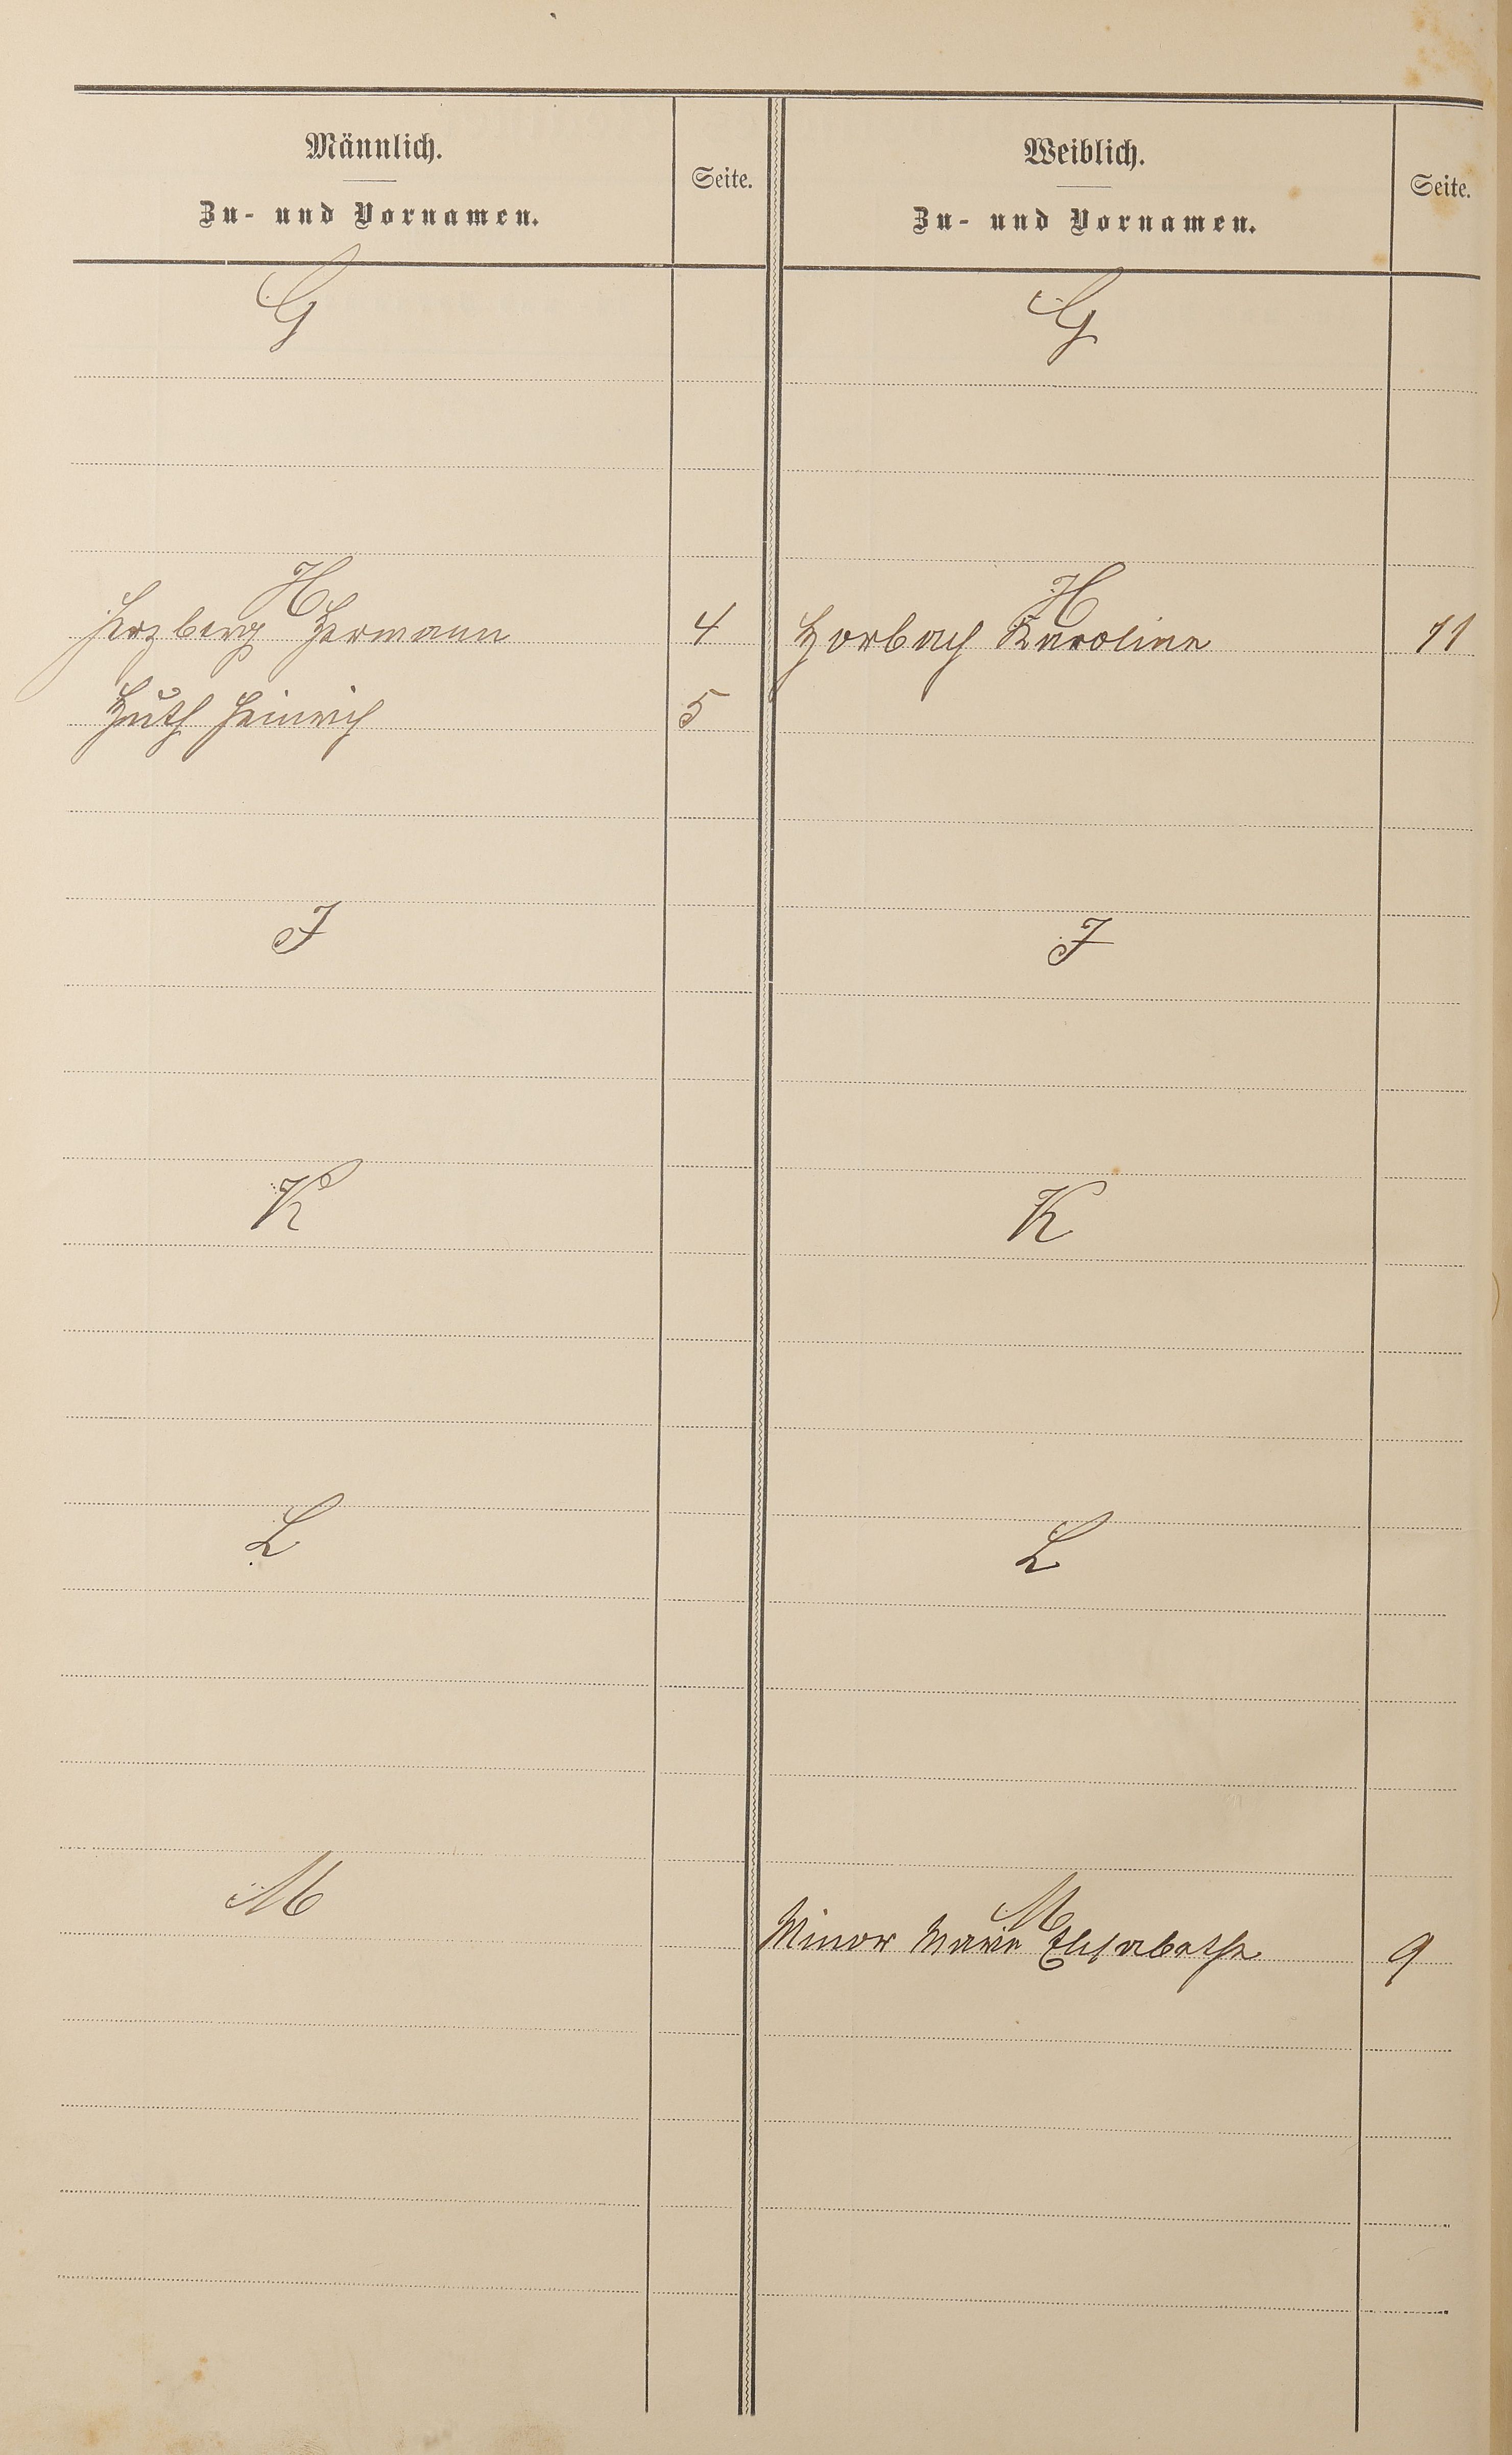 Männlich.
Zu- und Vornamen.
Seite.
Weiblich.
Zu- und Vornamen.
Seite.
G
G
H
H
Herzberg Hermann
4
Horbach Karoline
11
Huth Heinrich
5
J
J
K
K
L
L
M
M
Minor Marie Elisabethe
9